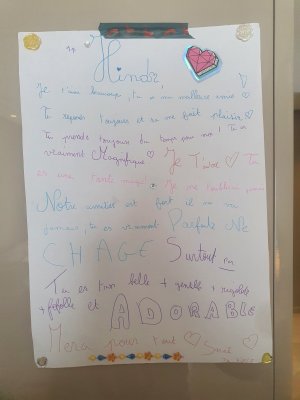 Hind
Je t'aime beaucoup, tu es ma meilleure amie ♡
Tu répond toujours et sa me fait plaisir ♡
Tu prends toujours du temps pour moi ! Tu es
vraiment Magnifique ♡ Je T'aime ♡ Tu
es une Je ne t'oublierai jamais
Notre amitier est fort il
jamais, tu es vraiment Parfaite Ne
CHAGE Surtout pas
Tu es trop belle + gentille + rigolote
+ fofolle et ADORABLE
Merci pour tout ♡